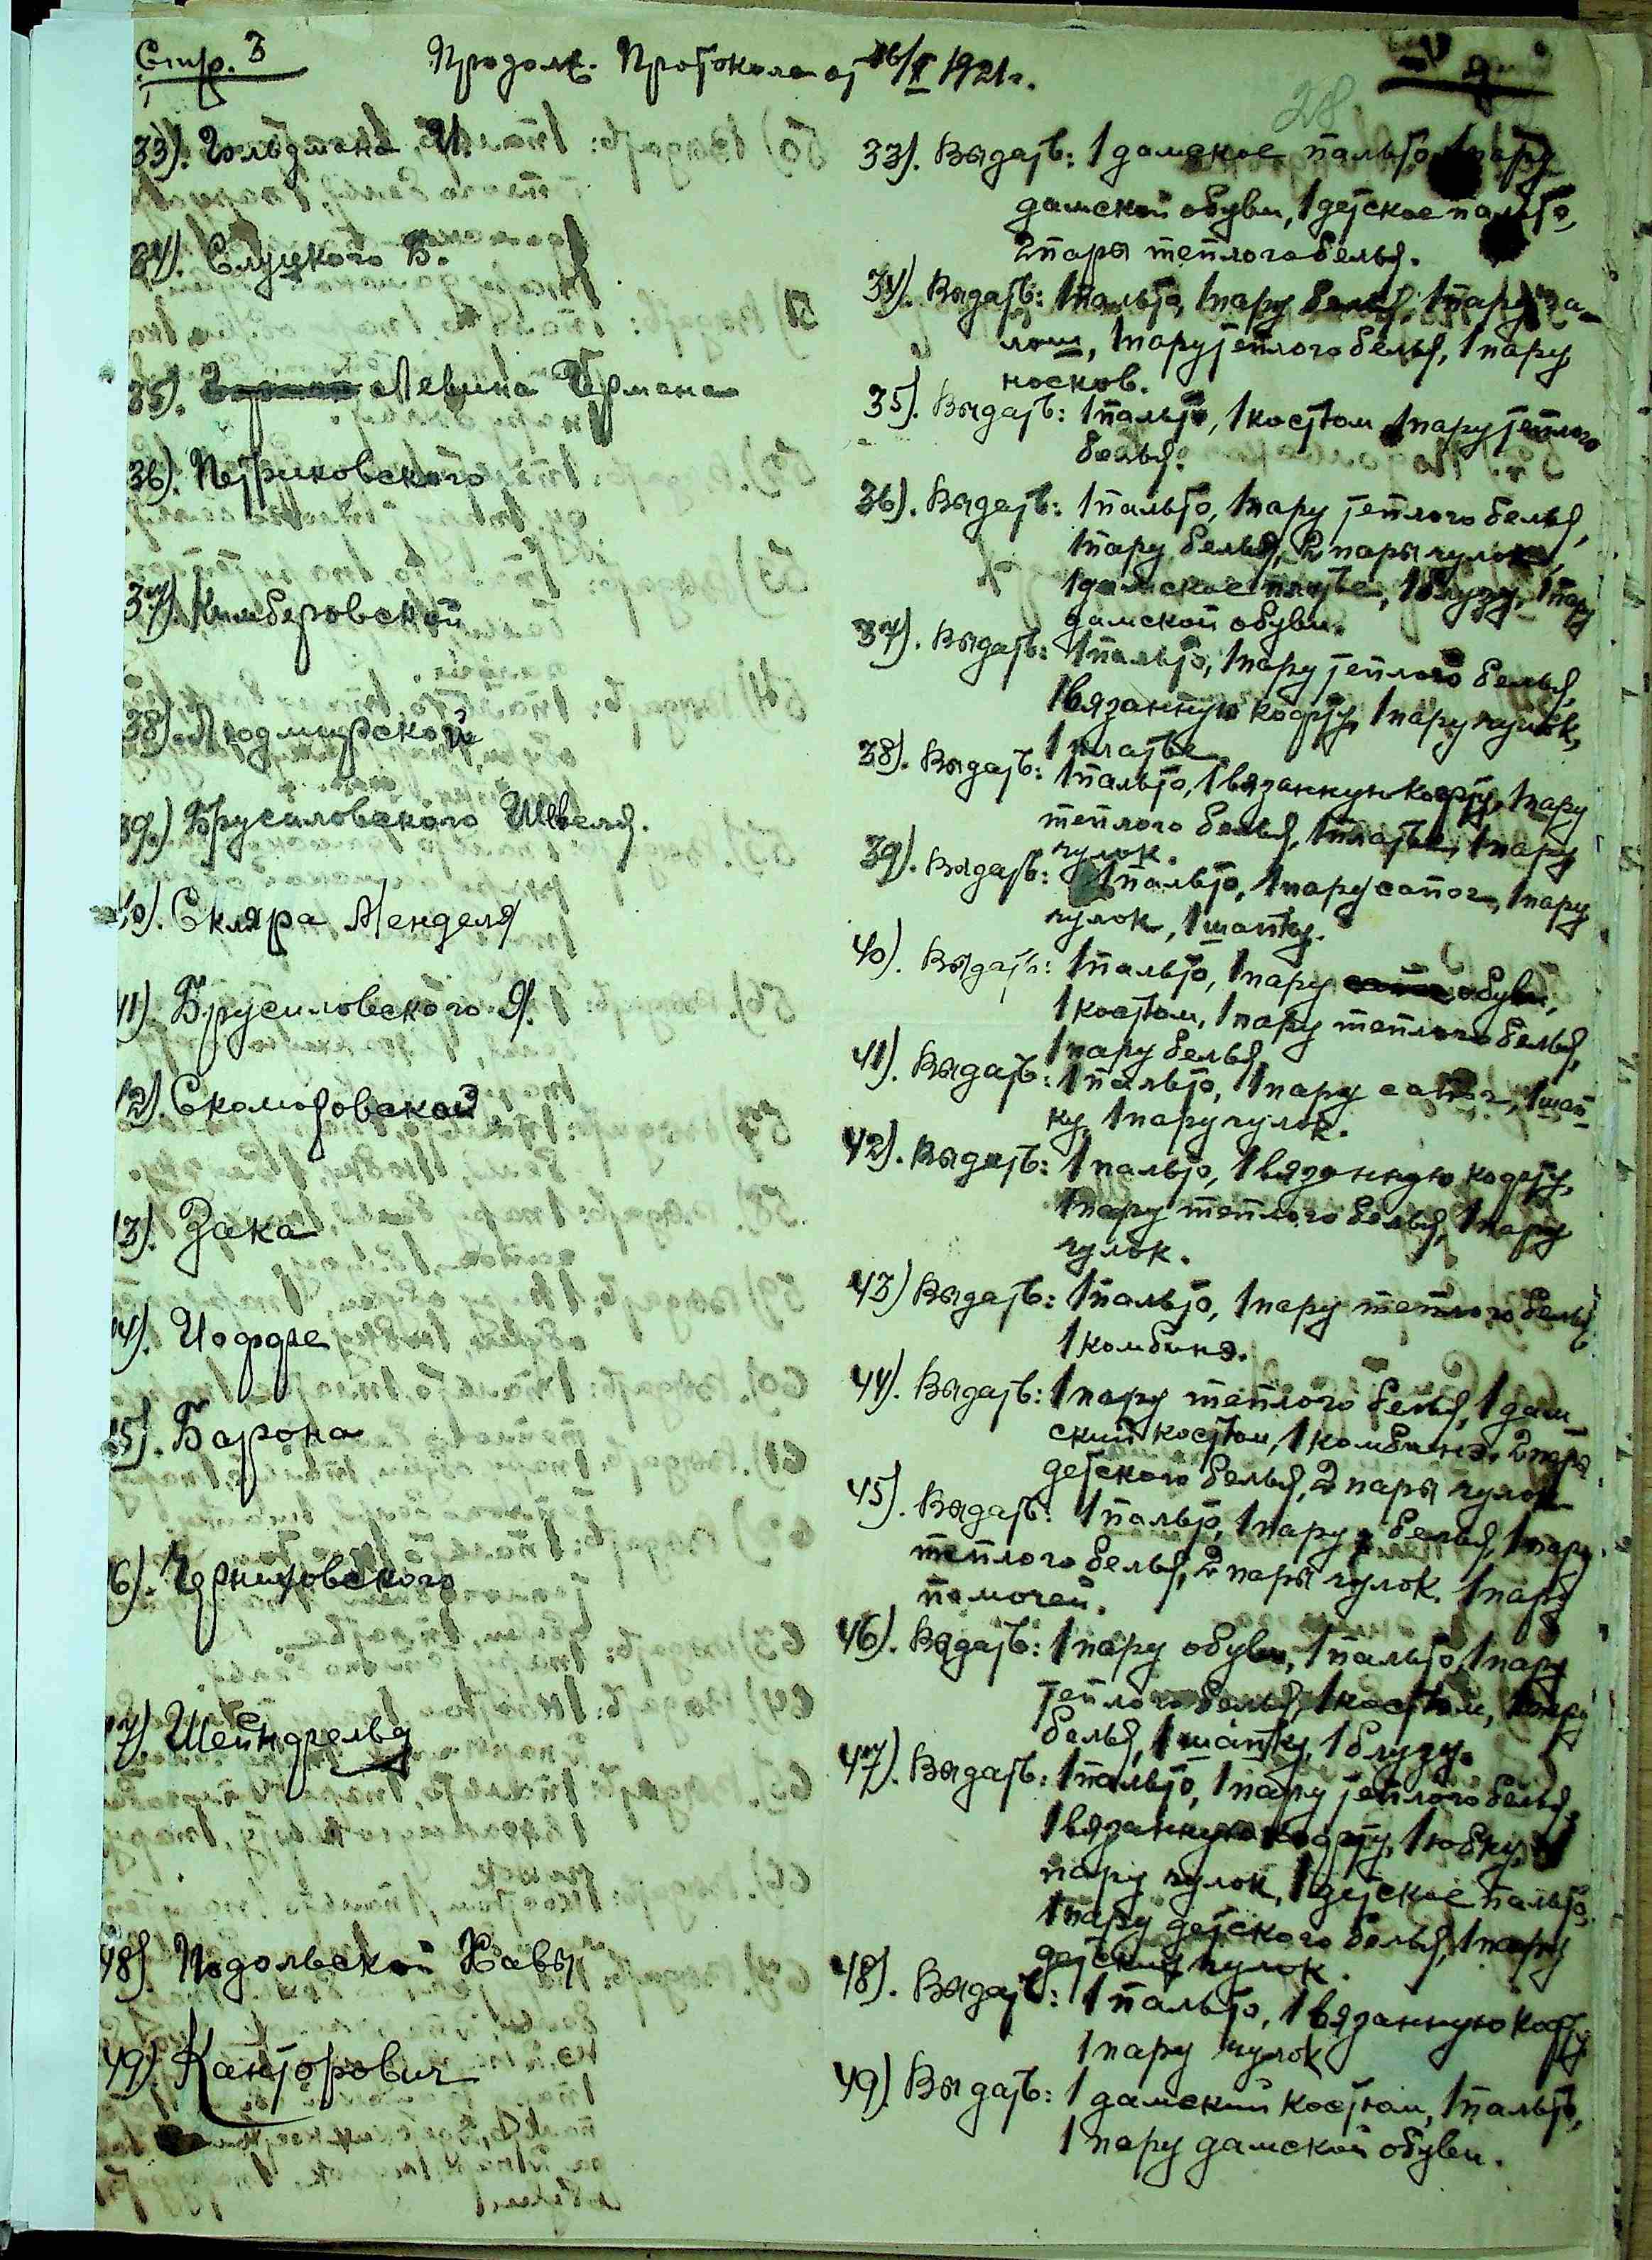 Стр. 3
Продолж. Протокола от 16/X 1921г.
28
33). Гольдмана И.
34). Слуцкого В.
35). Левина Германа
36). Петриковского
37). Кимберовской
38). Людмирской
39). Брусиловского Шевеля.
40). Скляра Менделя
41). Брусиловского Я.
42). Скоморовской
43). Зака
44). Иоффе
45). Барона
46). Черниховского
47) Шейнфельд
48). Подольской Хавы
49). Канторович
33). Выдать: 1 дамское пальто, 1 пару
дамской обуви, 1 детское пальто,
2 пары теплого белья.
34). Выдать: 1 пальто, 1 пару белья, 1 пару га-
лош, 1 пару теплого белья, 1 пару
носков.
35). Выдать: 1 пальто, 1 костюм, 1 пару теплого
белья.
36). Выдать: 1 пальто, 1 пару теплого белья,
1 пару белья, 2 пары чулок,
1 дамское платье, 1 блузу, 1 пару
дамской обуви.
37). Выдать: 1 пальто, 1 пару теплого белья,
1 вязанную кофту, 1 пару чулок,
1 платье
38). Выдать: 1 пальто, 1 вязанную кофту, 1 пару
теплого белья, 1 платье, 1 пару
чулок.
39). Выдать: 1 пальто, 1 пару сапог, 1 пару
чулок, 1 шапку.
40). Выдать: 1 пальто, 1 пару обуви,
1 костюм, 1 пару теплого белья,
1 пару белья
41). Выдать: 1 пальто, 1 пару сапог, 1 шап-
ку, 1 пару чулок.
42). Выдать: 1 пальто, 1 вязанную кофту,
1 пару теплого белья, 1 пару
чулок.
43) Выдать: 1 пальто, 1 пару теплого белья
1 комбинэ.
44). Выдать: 1 пару теплого белья, 1 дам-
ский костюм, 1 комбинэ, 2 пары
детского белья, 2 пары чулок
45). Выдать: 1 пальто, 1 пару белья, 1 пару
теплого белья, 2 пары чулок, 1 пару
помочей.
46). Выдать: 1 пару обуви, 1 пальто, 1 пару
теплого белья, 1 костюм, 1 пару
белья, 1 шапку, 1 блузу.
47). Выдать: 1 пальто, 1 пару теплого белья,
1 вязанную кофту, 1 юбку, 1
пару чулок, 1 детское пальто,
1 пару детского белья, 1 пару
детских чулок.
48). Выдать: 1 пальто, 1 вязанную кофту
1 пару чулок
49). Выдать: 1 дамский костюм, 1 пальто,
1 пару дамской обуви.